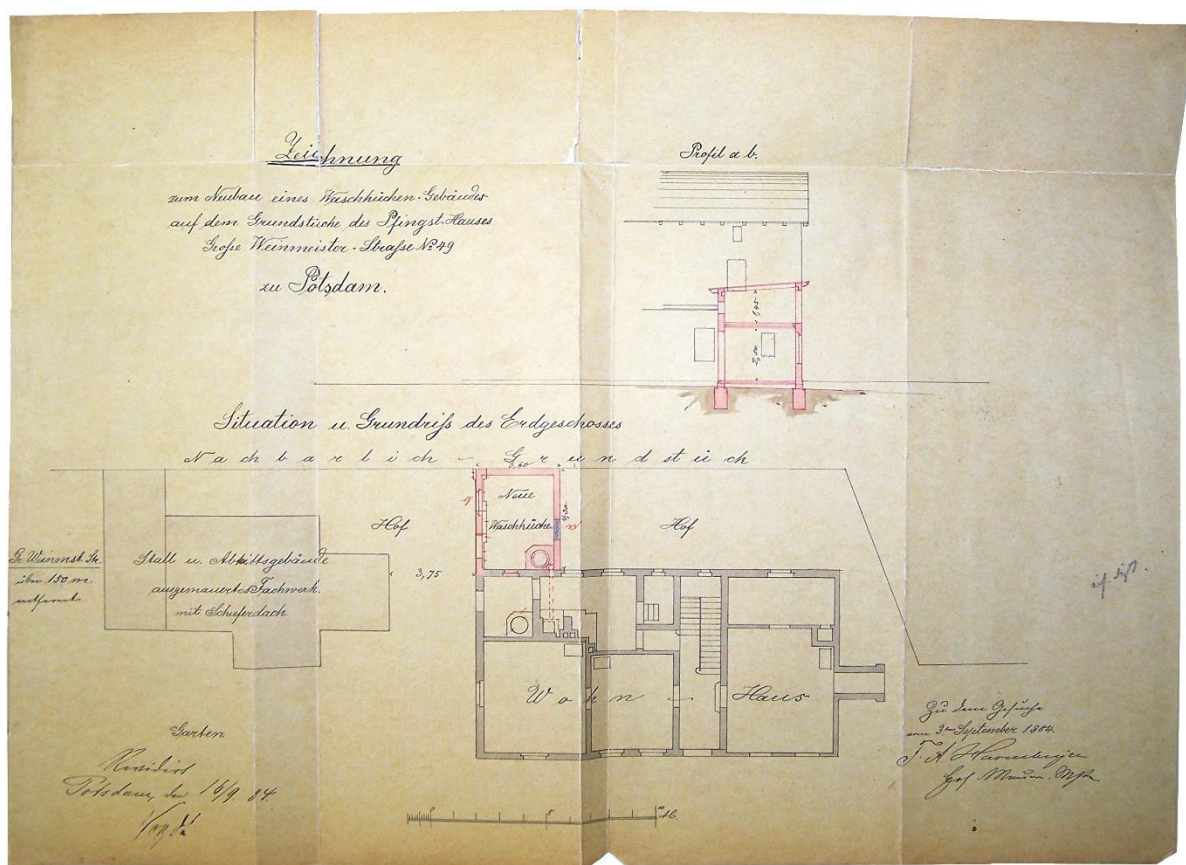 Zeichnung
zum Neubau eines Waschküchen-Gebäudes
auf dem Grundstücke des Pfingst-Hauses
Große Weinmeister-Straße No 49
zu Potsdam.
Profil a b.
1,45
2,50
Situation u. Grundriß des Erdgeschosses
Nachbarlich - Grundstück
Neue
Waschküche
b
a
Hof
Hof
Gr. Weinmst. Str.
über 150 m
entfernt
Stall u. Abtrittsgebäude
ausgemauertes Fachwerk.
mit Schieferdach
3,75
Wohn - Haus
Garten
Revidirt
Potsdam, den 16/9. 84.
Vogdt
Zu dem Gesuche
vom 3ten September 1884.
0
5
10